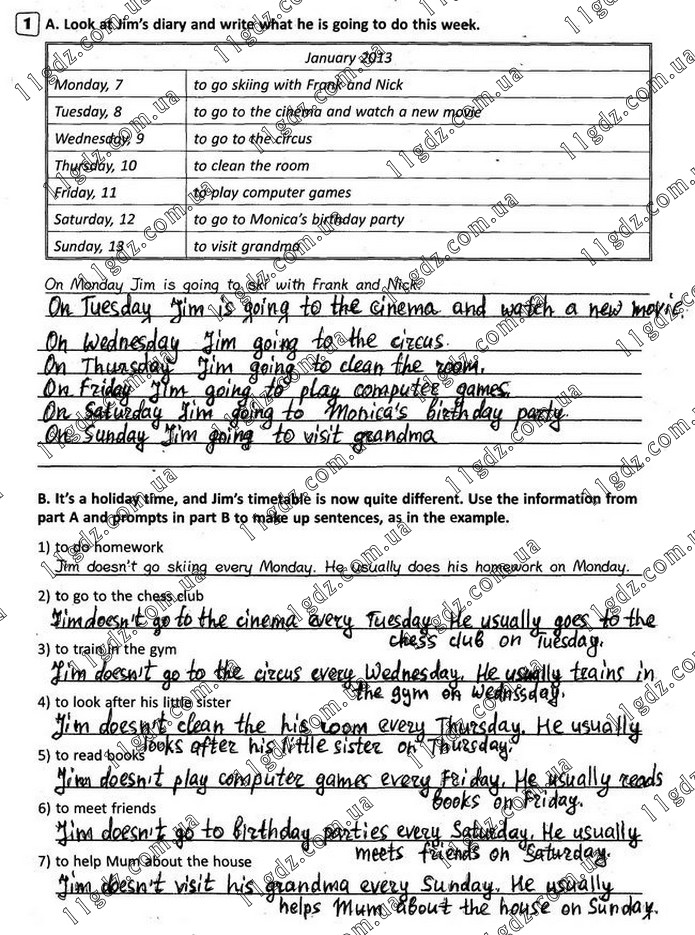 1 A. Look at Jim's diary and write what he is going to do this week.
January 2013
Monday, 7 to go skiing with Frank and Nick
Tuesday, 8 to go to the cinema and watch a new movie
Wednesday, 9 to go to the circus
Thursday, 10 to clean the room
Friday, 11 to play computer games
Saturday, 12 to go to Monica's birthday party
Sunday, 13 to visit grandma
On Monday Jim is going to ski with Frank and Nick.
On Tuesday Jim is going to the cinema and watch a new movie.
On Wednesday Jim going to the circus.
On Thursday Jim going to clean the room.
On Friday Jim going to play computer games.
On Saturday Jim going to Monica's birthday party.
On Sunday Jim going to visit grandma
B. It's a holiday time, and Jim's timetable is now quite different. Use the information from
part A and prompts in part B to make up sentences, as in the example.
1) to do homework
Jim doesn't go skiing every Monday. He usually does his homework on Monday.
2) to go to the chess club
Jim doesn't go to the cinema every Tuesday. He usually goes to the
chess club on Tuesday.
3) to train in the gym
Jim doesn't go to the circus every Wednesday. He usually trains in
the gym on Wednssday.
4) to look after his little sister
Jim doesn't clean the his room every Thursday. He usually
looks after his little sister on Thursday.
5) to read books
Jim doesn't play computer games every Friday. He usually reads
books on Friday.
6) to meet friends
Jim doesn't go to birthday parties every Saturday. He usually
meets friends on Saturday.
7) to help Mum about the house
Jim doesn't visit his grandma every Sunday. He usually
helps Mum about the house on Sunday.
11gdz.com.ua